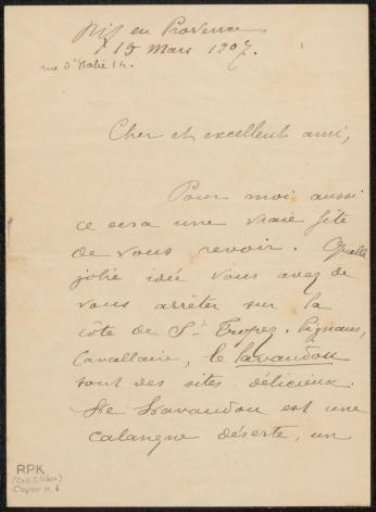 Aix en Provence
15 Mars 1907.
rue d'Italie 14.
Cher et excellent ami,
Pour moi aussi
ce sera une vraie fête
de vous revoir. Quelle
jolie idée vous avez de
vous arrêter sur la
côte de St Tropez.
Cavallaire, le Lavandou
sont des sites délicieux.
Le Lavandou est une
calanque déserte, un
RPK